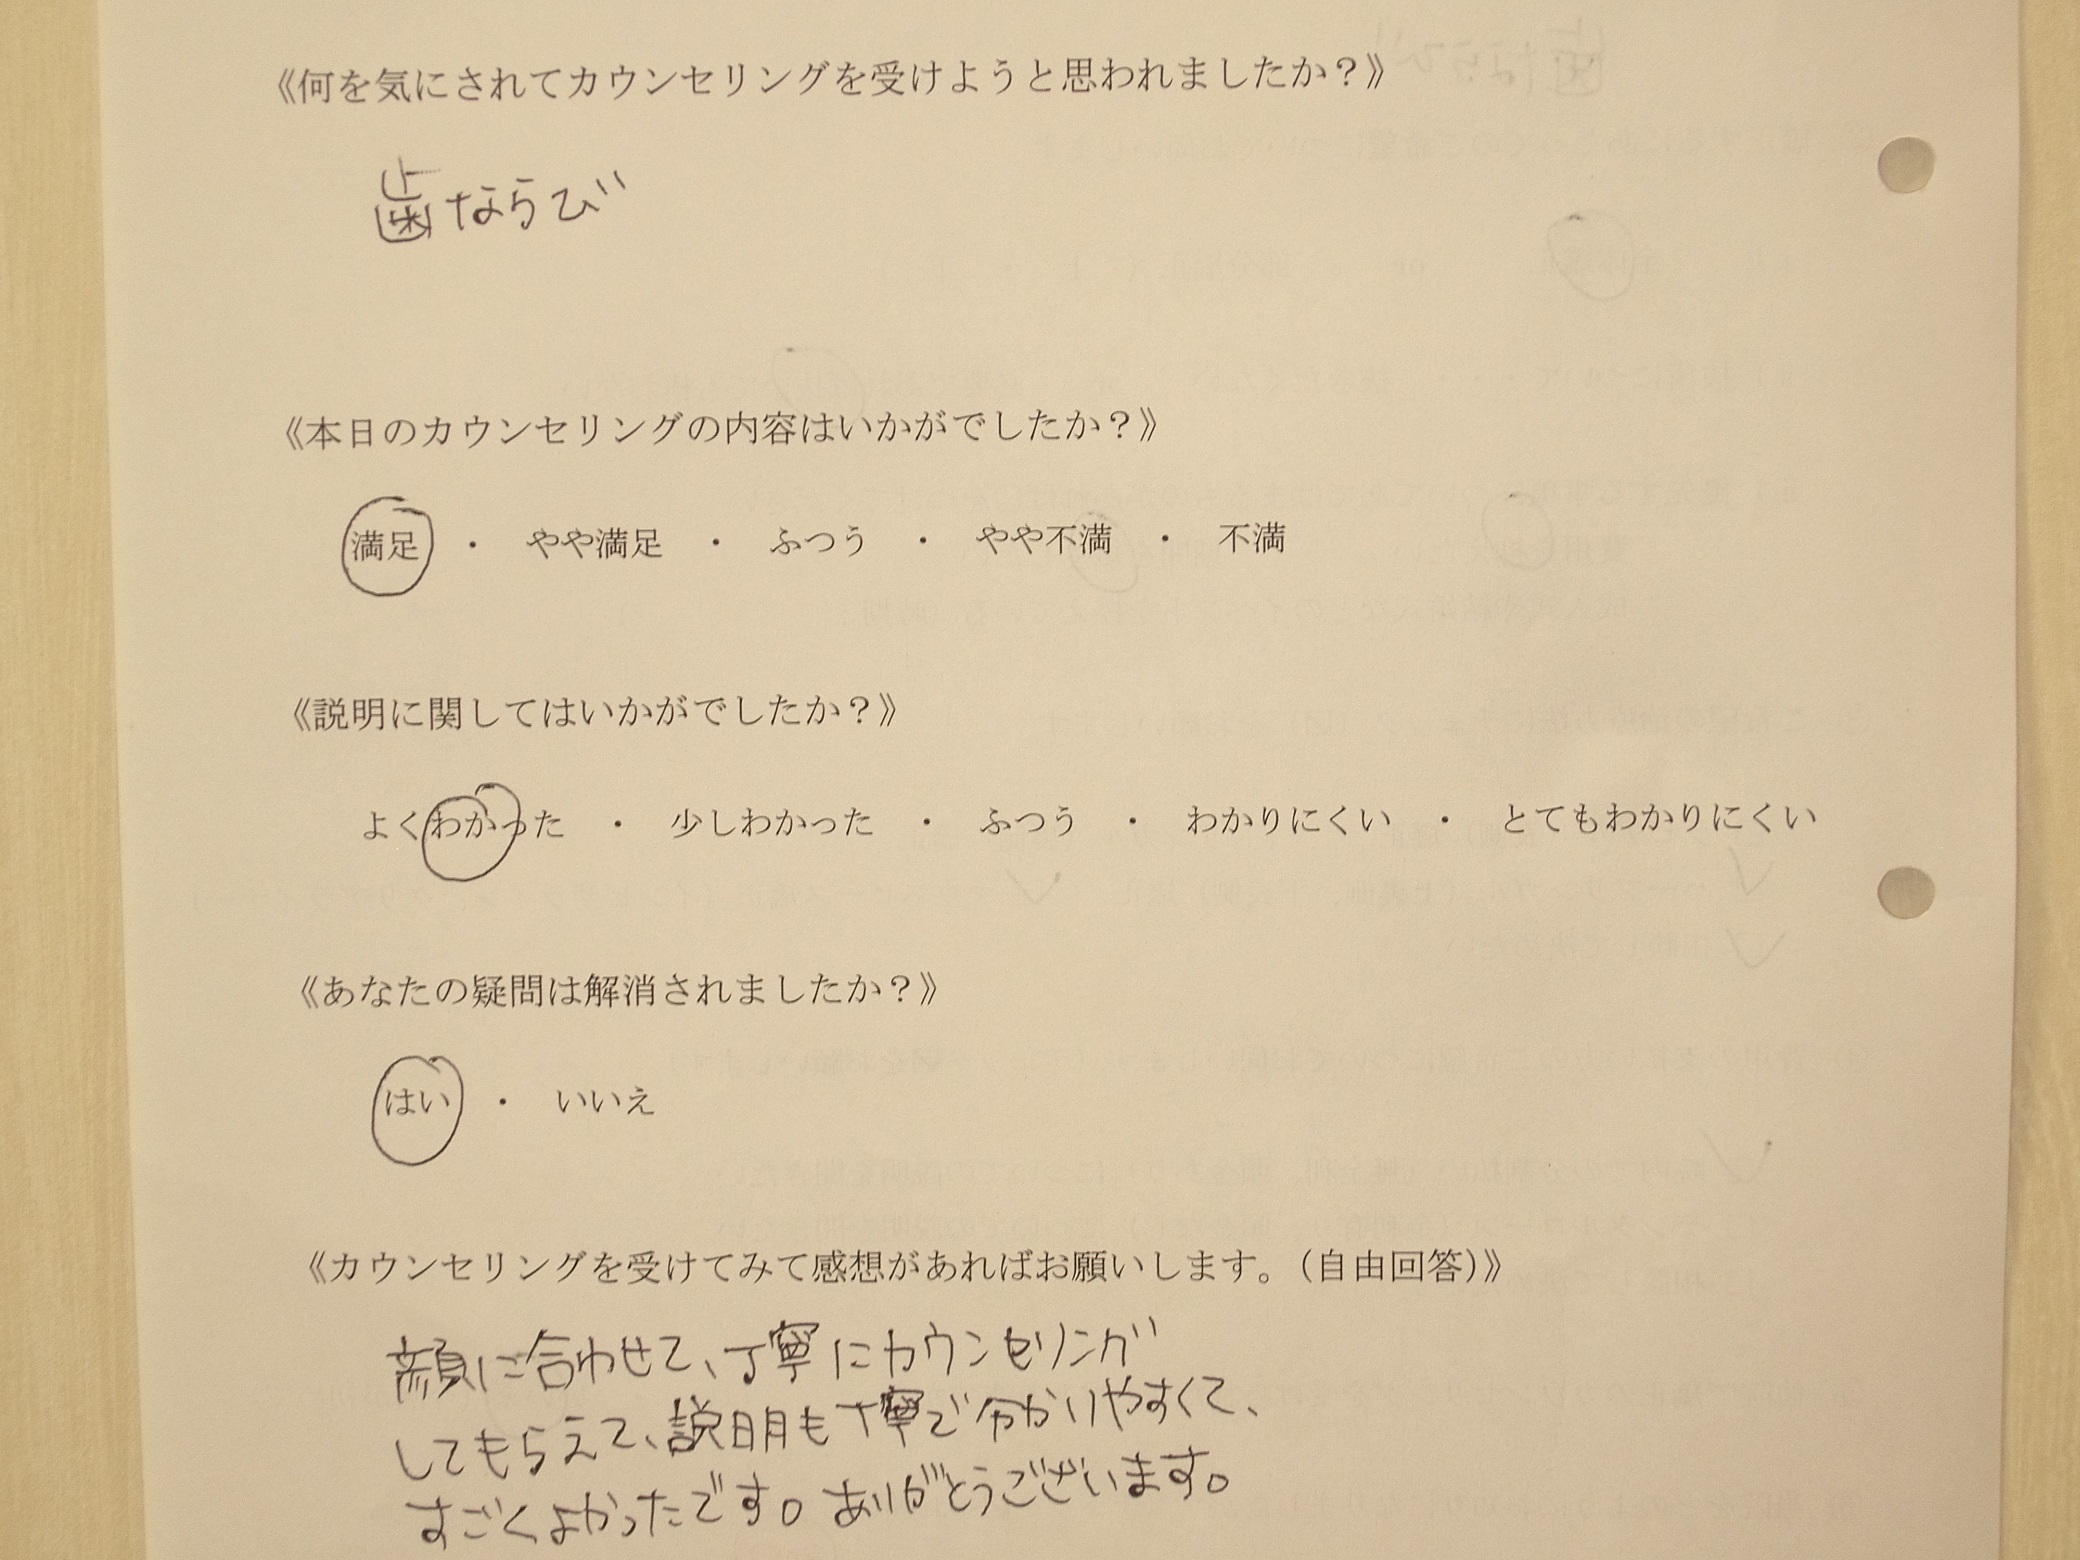 《何を気にされてカウンセリングを受けようと思われましたか？》
歯ならび
《本日のカウンセリングの内容はいかがでしたか？》
満足 ・ やや満足 ・ ふつう ・ やや不満 ・ 不満
《説明に関してはいかがでしたか？》
よくわかった ・ 少しわかった ・ ふつう ・ わかりにくい ・ とてもわかりにくい
《あなたの疑問は解消されましたか？》
はい ・ いいえ
《カウンセリングを受けてみて感想があればお願いします。（自由回答）》
顔に合わせて、丁寧にカウンセリング
してもらえて、説明も丁寧で分かりやすくて、
すごくよかったです。ありがとうございます。